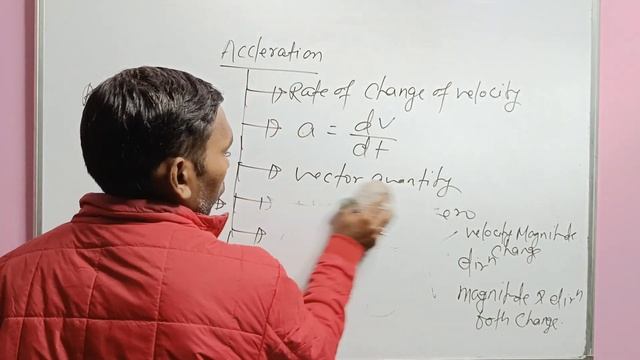 Accleration
Rate of change of velocity
a = dv/dt
vector quantity
ero
velocity Magnitude
change
dirn
magnitude & dirn
both change